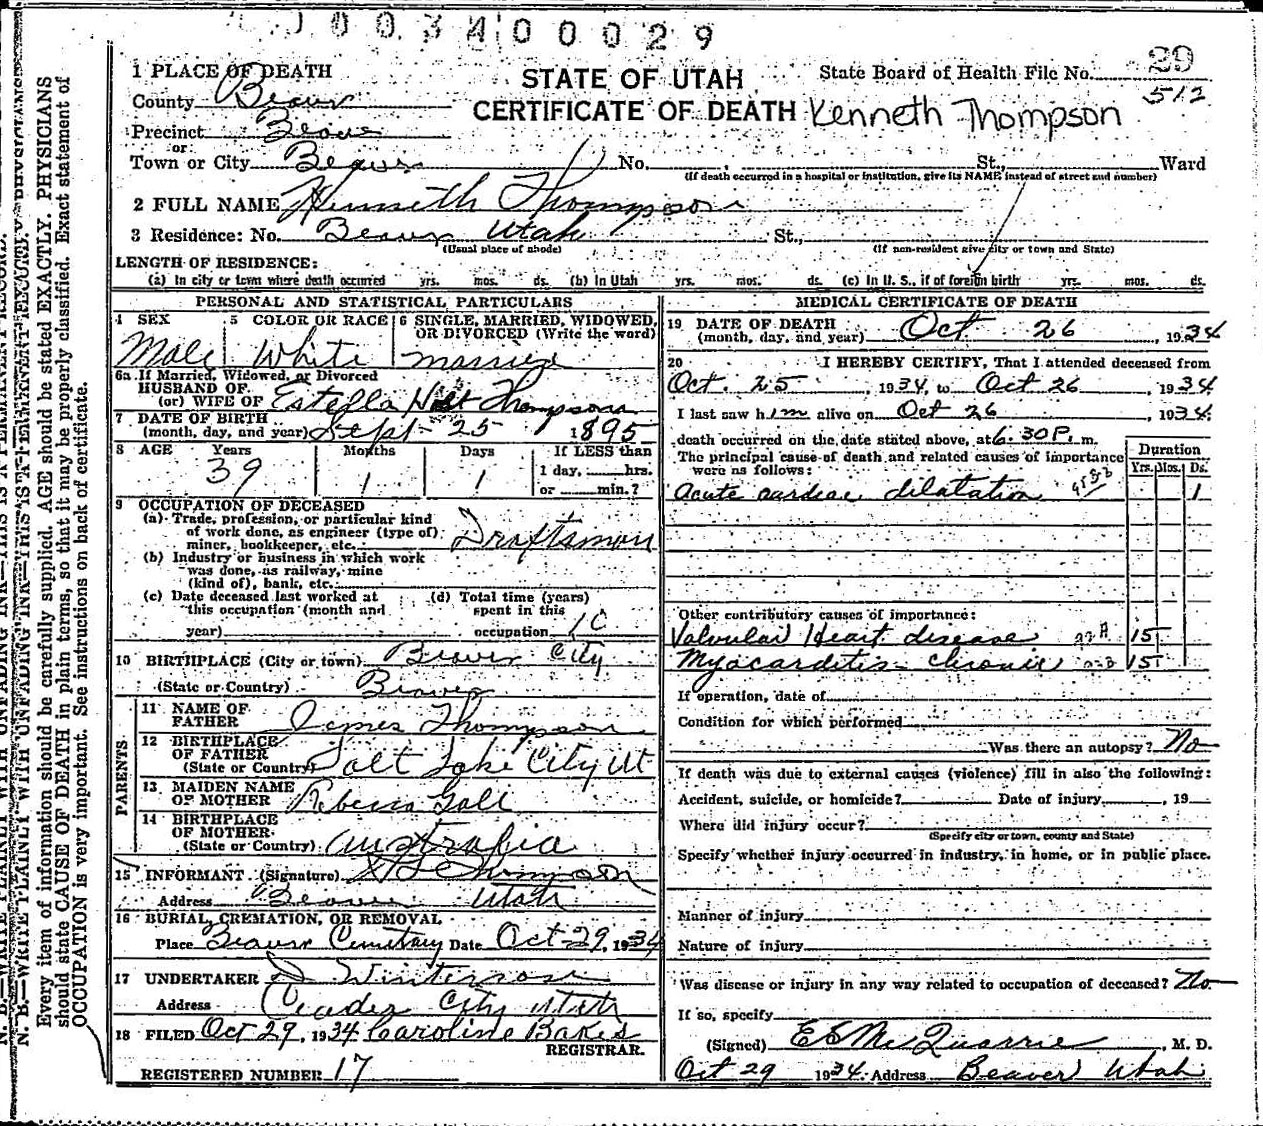 003400029
1 PLACE OF DEATH
STATE OF UTAH
State Board of Health File No. 29
512
County Beaver
CERTIFICATE OF DEATH Kenneth Thompson
Precinct Beaver
or
Town or City Beaver No. St., Ward
(If death occurred in a hospital or institution, give its NAME instead of street and number)
2 FULL NAME Kenneth Thompson
3 Residence: No. Beaver Utah St.,
(Usual place of abode) (If non-resident give city or town and State)
LENGTH OF RESIDENCE:
(a) In city or town where death occurred yrs. mos. ds. (b) In Utah yrs. mos. ds. (c) In U. S., if of foreign birth yrs. mos. ds.
PERSONAL AND STATISTICAL PARTICULARS
4 SEX 5 COLOR OR RACE 6 SINGLE, MARRIED, WIDOWED,
OR DIVORCED (Write the word)
Male White married
6a If Married, Widowed, or Divorced
HUSBAND OF
(or) WIFE OF Estella Holt Thompson
7 DATE OF BIRTH
(month, day, and year) Sept 25 1895
8 AGE Years Months Days If LESS than
39 1 1 1 day, hrs.
or min.?
9 OCCUPATION OF DECEASED
(a) Trade, profession, or particular kind
of work done, as engineer (type of)
miner, bookkeeper, etc. Draftsman
(b) Industry or business in which work
was done, as railway, mine
(kind of), bank, etc.
(c) Date deceased last worked at (d) Total time (years)
this occupation (month and spent in this
year) occupation 10
10 BIRTHPLACE (City or town) Beaver City
(State or Country) Beaver
PARENTS
11 NAME OF
FATHER James Thompson
12 BIRTHPLACE
OF FATHER
(State or Country) Salt Lake City Ut
13 MAIDEN NAME
OF MOTHER Rebecca Gall
14 BIRTHPLACE
OF MOTHER
(State or Country) Australia
15 INFORMANT (Signature) Thompson
Address Beaver Utah
16 BURIAL, CREMATION, OR REMOVAL
Place Beaver Cemetary Date Oct 29, 1934
17 UNDERTAKER Winterrose
Address Ceader City utah
18 FILED Oct 29, 1934 Caroline Bakes
REGISTRAR.
REGISTERED NUMBER 17
MEDICAL CERTIFICATE OF DEATH
19 DATE OF DEATH
(month, day, and year) Oct 26, 1934
20 I HEREBY CERTIFY, That I attended deceased from
Oct. 25, 1934, to Oct 26, 1934
I last saw him alive on Oct 26, 1934
death occurred on the date stated above, at 6:30 P. m.
The principal cause of death and related causes of importance
were as follows:
Duration
Yrs. Mos. Ds.
Acute cardiac dilatation 1
Other contributory causes of importance:
Valvular Heart disease 15
Myocarditis chronic 15
If operation, date of
Condition for which performed
Was there an autopsy? No
If death was due to external causes (violence) fill in also the following:
Accident, suicide, or homicide? Date of injury, 19
Where did injury occur?
(Specify city or town, county and State)
Specify whether injury occurred in industry, in home, or in public place.
Manner of injury
Nature of injury
Was disease or injury in any way related to occupation of deceased? No
If so, specify
(Signed) E S McQuarrie, M. D.
Oct 29 1934 Address Beaver Utah
N. B.—WRITE PLAINLY WITH UNFADING INK—THIS IS A PERMANENT RECORD.
Every item of information should be carefully supplied. AGE should be stated EXACTLY. PHYSICIANS
should state CAUSE OF DEATH in plain terms, so that it may be properly classified. Exact statement of
OCCUPATION is very important. See instructions on back of certificate.